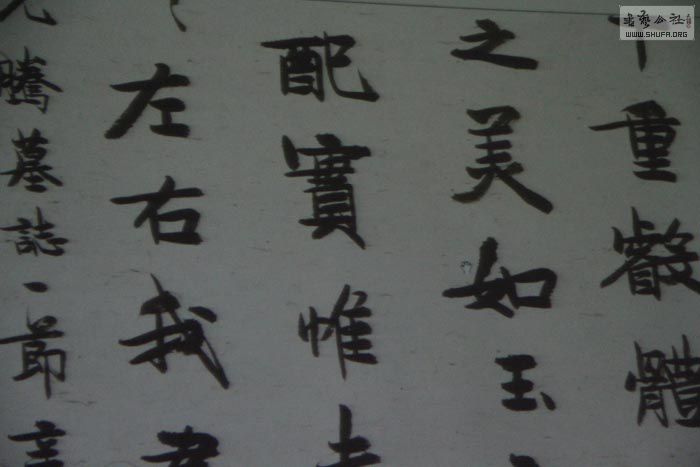 書藝公社
WWW.SHUFA.ORG
重叡體
之美如玉
配實惟
左右我
元騰墓誌一節